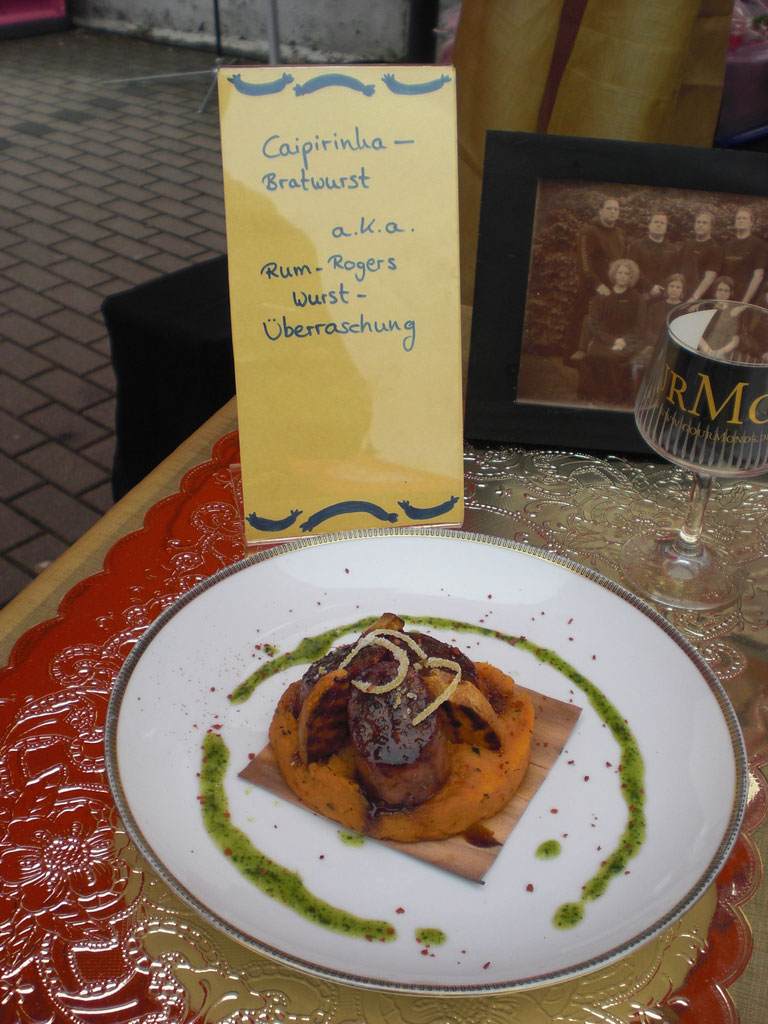 Caipirinha –
Bratwurst
a.k.a.
Rum-Rogers
Wurst-
Überraschung